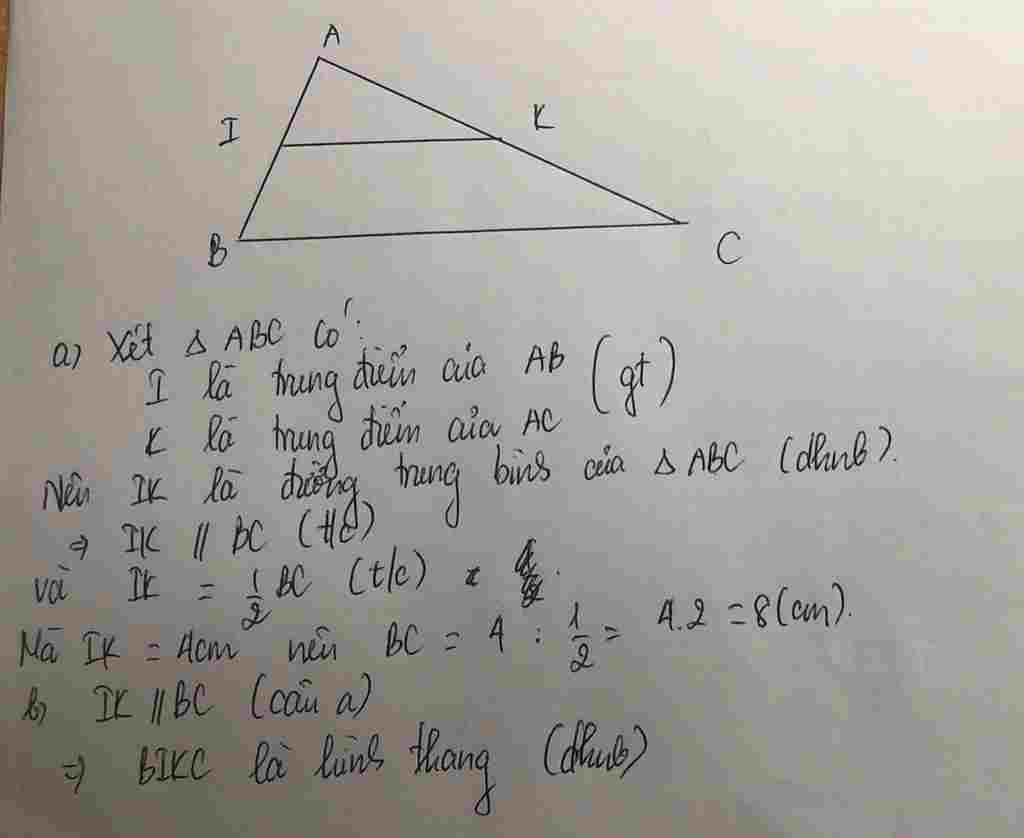 A
I
K
B
C
a) Xét Δ ABC có:
I là trung điểm của AB (gt)
K là trung điểm của AC
Nên IK là đường trung bình của Δ ABC (dhnb).
⇒ IK // BC (t/c)
và IK = 1/2 BC (t/c)
Mà IK = 4cm nên BC = 4 : 1/2 = 4.2 = 8 (cm).
b) IK // BC (câu a)
⇒ BIKC là hình thang (dhnb)